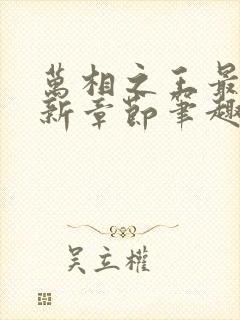 萬相之王最
新章節筆趣
吴立權